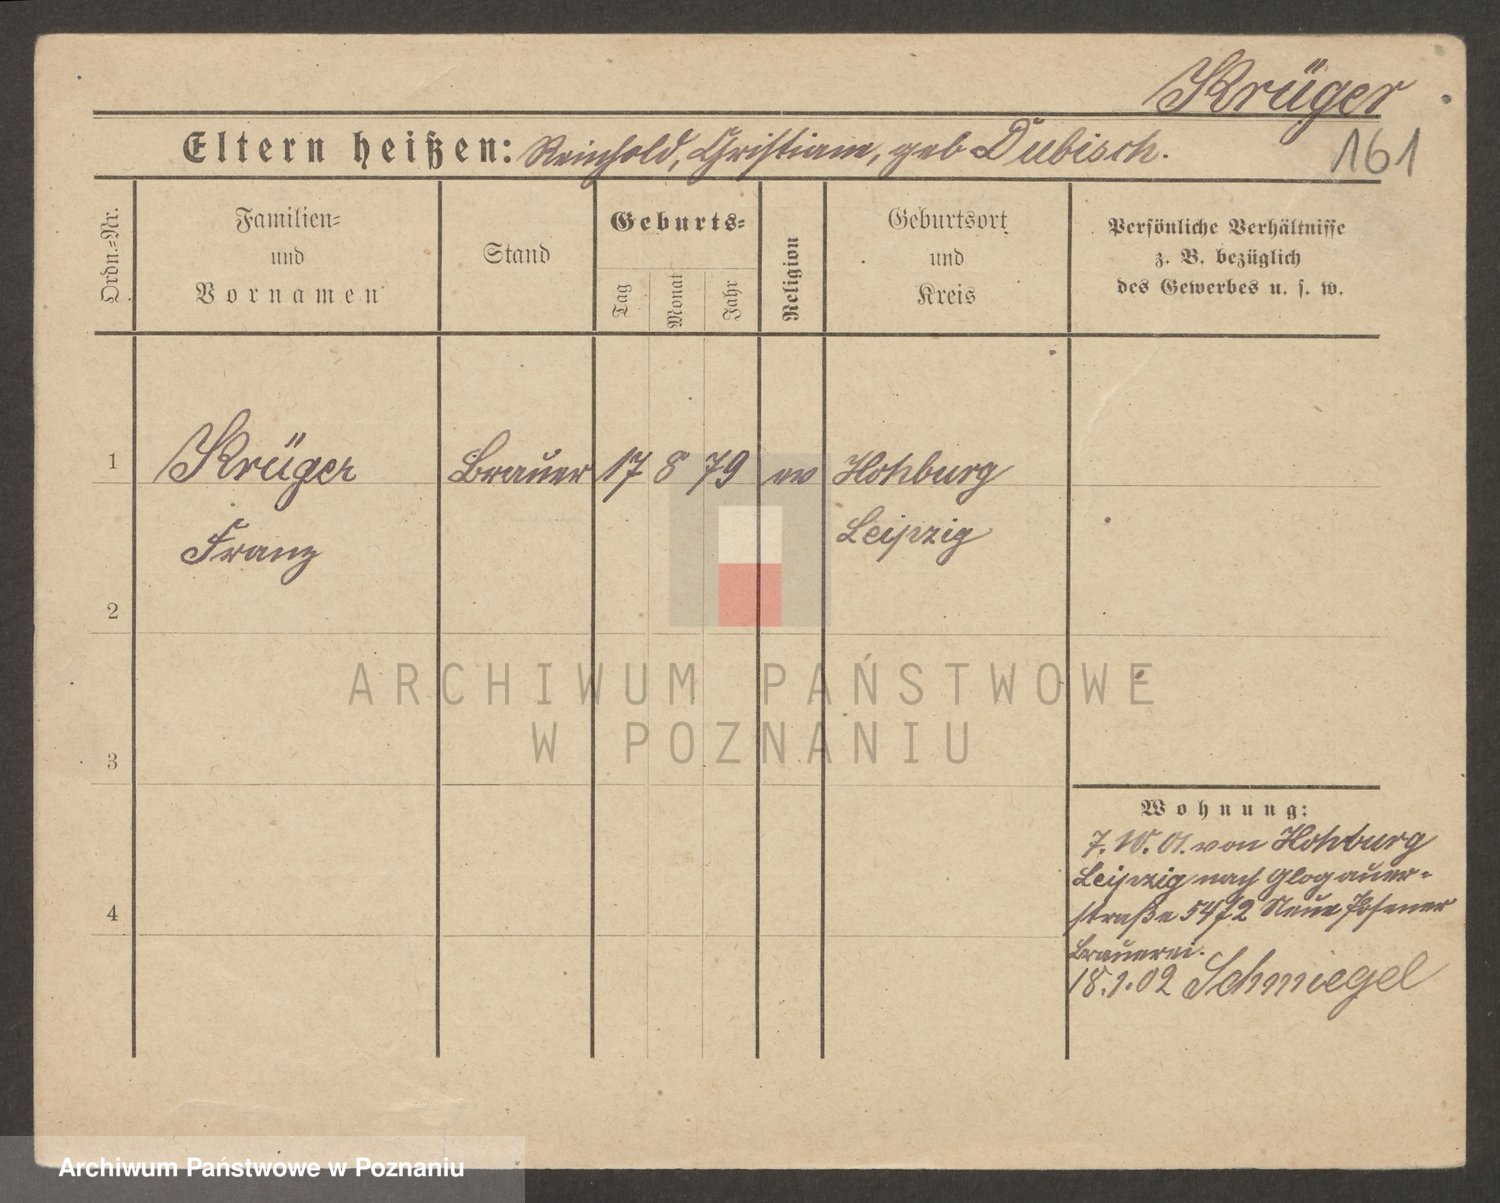 Krüger
Eltern heißen: Reinhold, Christiane, geb Dubisch.
161
Ordn.=Nr.
Familien=
und
Vornamen
Stand
Geburts=
Tag
Monat
Jahr
Religion
Geburtsort
und
Kreis
Persönliche Verhältnisse
z. B. bezüglich
des Gewerbes u. s. w.
1
Krüger
Brauer
17 8 79
ev
Hohburg
Franz
Leipzig
2
ARCHIWUM PAŃSTWOWE
W POZNANIU
3
Wohnung:
7. 10. 01. von Hohburg
Leipzig nach Glogauer-
straße 54/72 Neue Posener
4
Brauerei.
18.1.02 Schmiegel
Archiwum Państwowe w Poznaniu